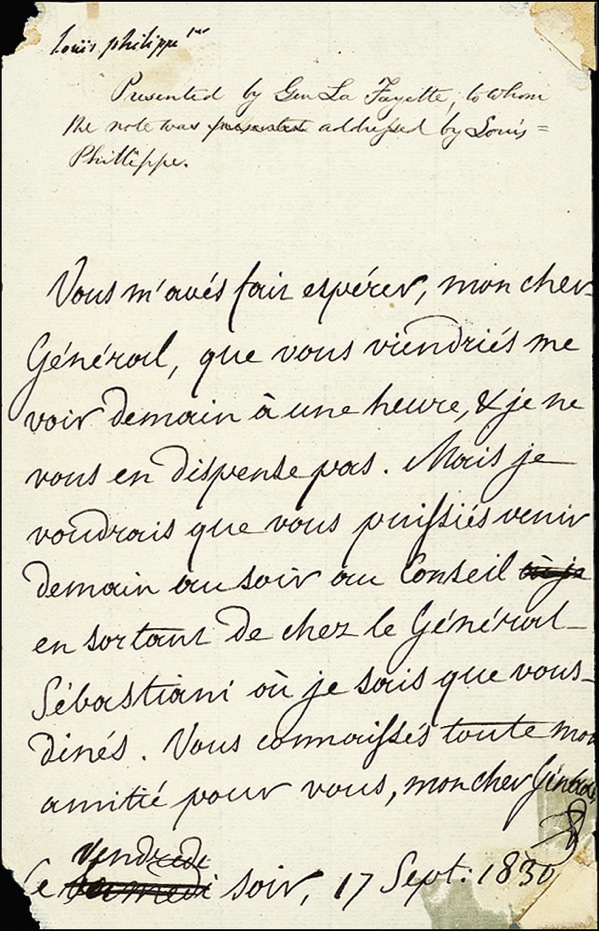 Louis philippe 1er
Presented by Gen La Fayette, to whom
the note was presented addressed by Louis=
Phillippe.
Vous m'avés fait espérer, mon cher
Général, que vous viendriés me
voir demain à une heure, & je ne
vous en dispense pas. Mais je
voudrais que vous puissiés venir
demain au soir au Conseil où je
en sortant de chez le Général
Sébastiani où je sais que vous
dinés. Vous connaissés toute mon
amitié pour vous, mon cher Général
vendredi
Ce samedi soir, 17 Sept. 1830